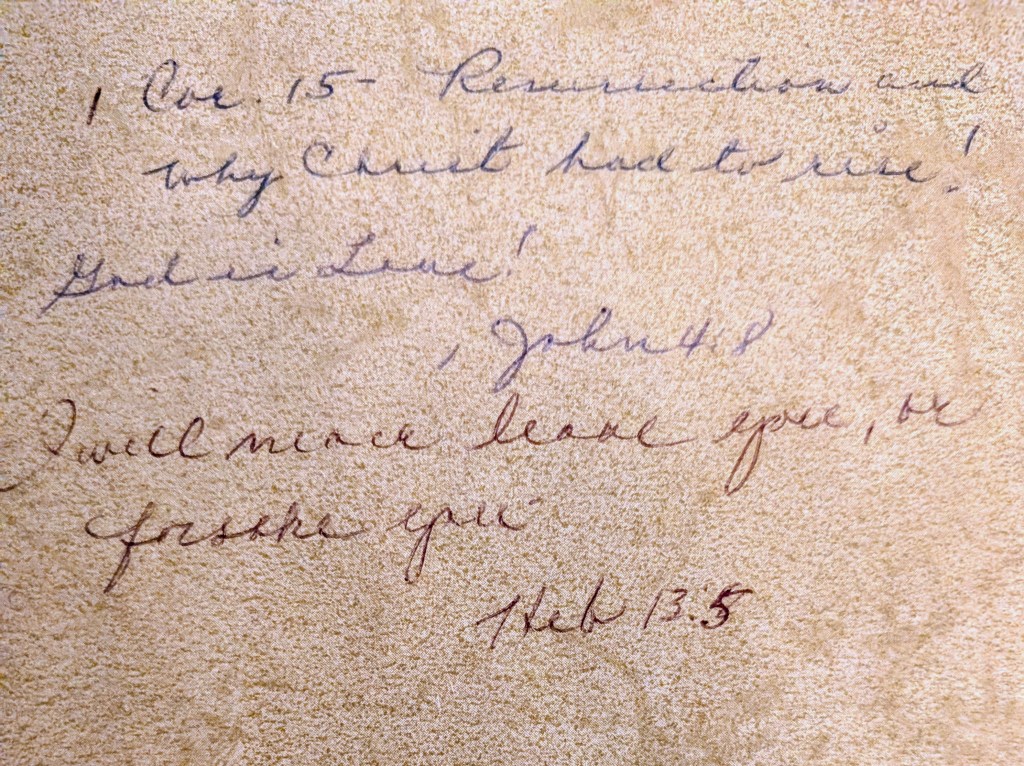 1 Cor. 15 - Resurrection and
why Christ had to rise!
God is Love!
1 John 4:8
I will never leave you, or
forsake you"
Heb 13:5